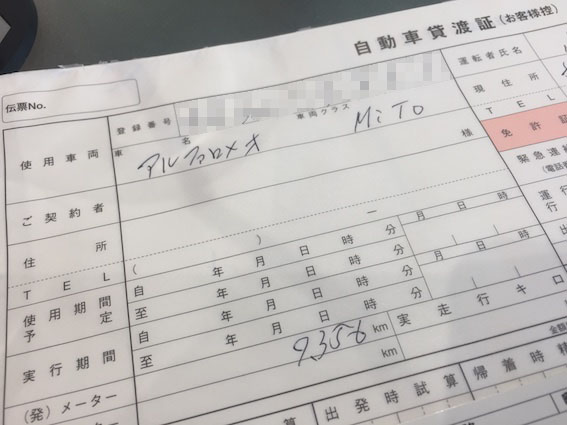 自動車貸渡証(お客様控)
伝票No.
使用車両
登録番号
車名
アルファロメオ
車両クラス
MiTo
運転者氏名
現住所
TEL
免許証
緊急連絡
(電話番
運行
行
ご契約者
様
住所
TEL
( ) ー
使用期間
予定
自 年 月 日 時 分
至 年 月 日 時 分
月 日 時
実行期間
自 年 月 日 時 分
至 年 月 日 時 分
月 日 時
(発)メーター
9356 km
実走行キロ
メーター
km
金額
出発時試算
帰着時精
算